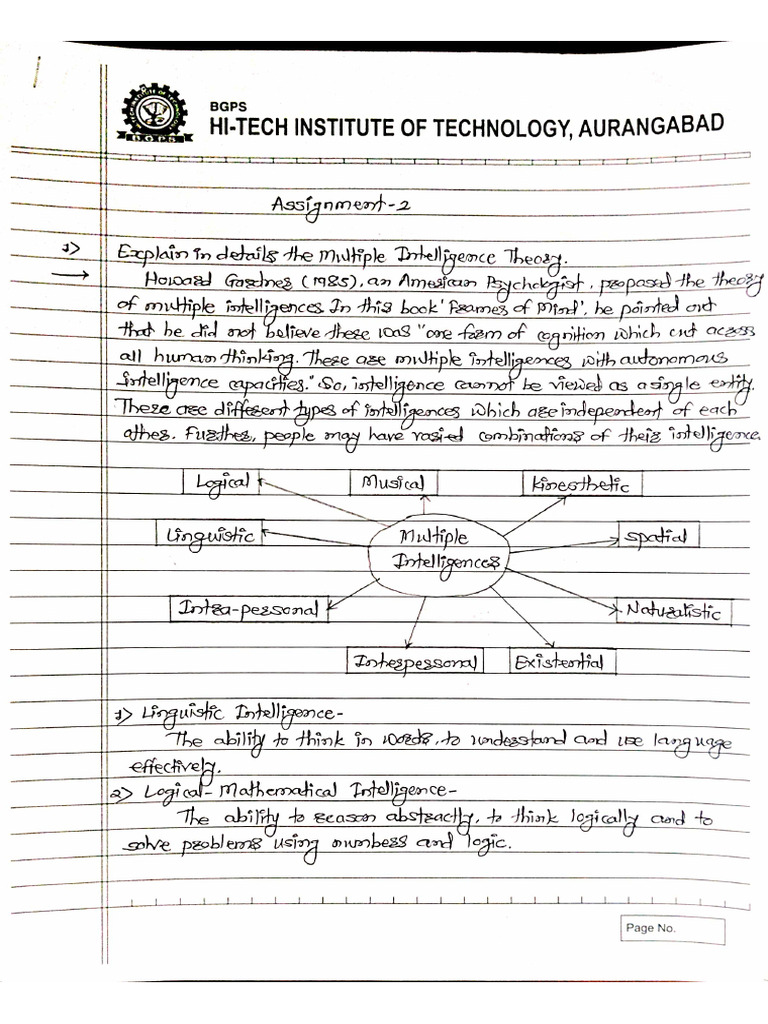 BGPS
HI-TECH INSTITUTE OF TECHNOLOGY, AURANGABAD
BGPS
Assignment-2
1> Explain in details the Multiple Intelligence Theory.
→ Howard Gardner (1985), an American Psychologist, proposed the theory
of multiple intelligences In this book 'Frames of Mind', he pointed out
that he did not believe there was "one form of cognition which cut across
all human thinking. There are multiple intelligences with autonomous
intelligence capacities." So, intelligence cannot be viewed as a single entity.
There are different types of intelligences which are independent of each
other. Further, people may have varied combinations of their intelligence.
Logical Musical Kinesthetic
Linguistic Multiple spatial
Intelligences
Intra-personal Naturalistic
Interpersonal Existential
1> Linguistic Intelligence-
The ability to think in words, to understand and use language
effectively.
2> Logical-Mathematical Intelligence-
The ability to reason abstractly, to think logically and to
solve problems using numbers and logic.
Page No.